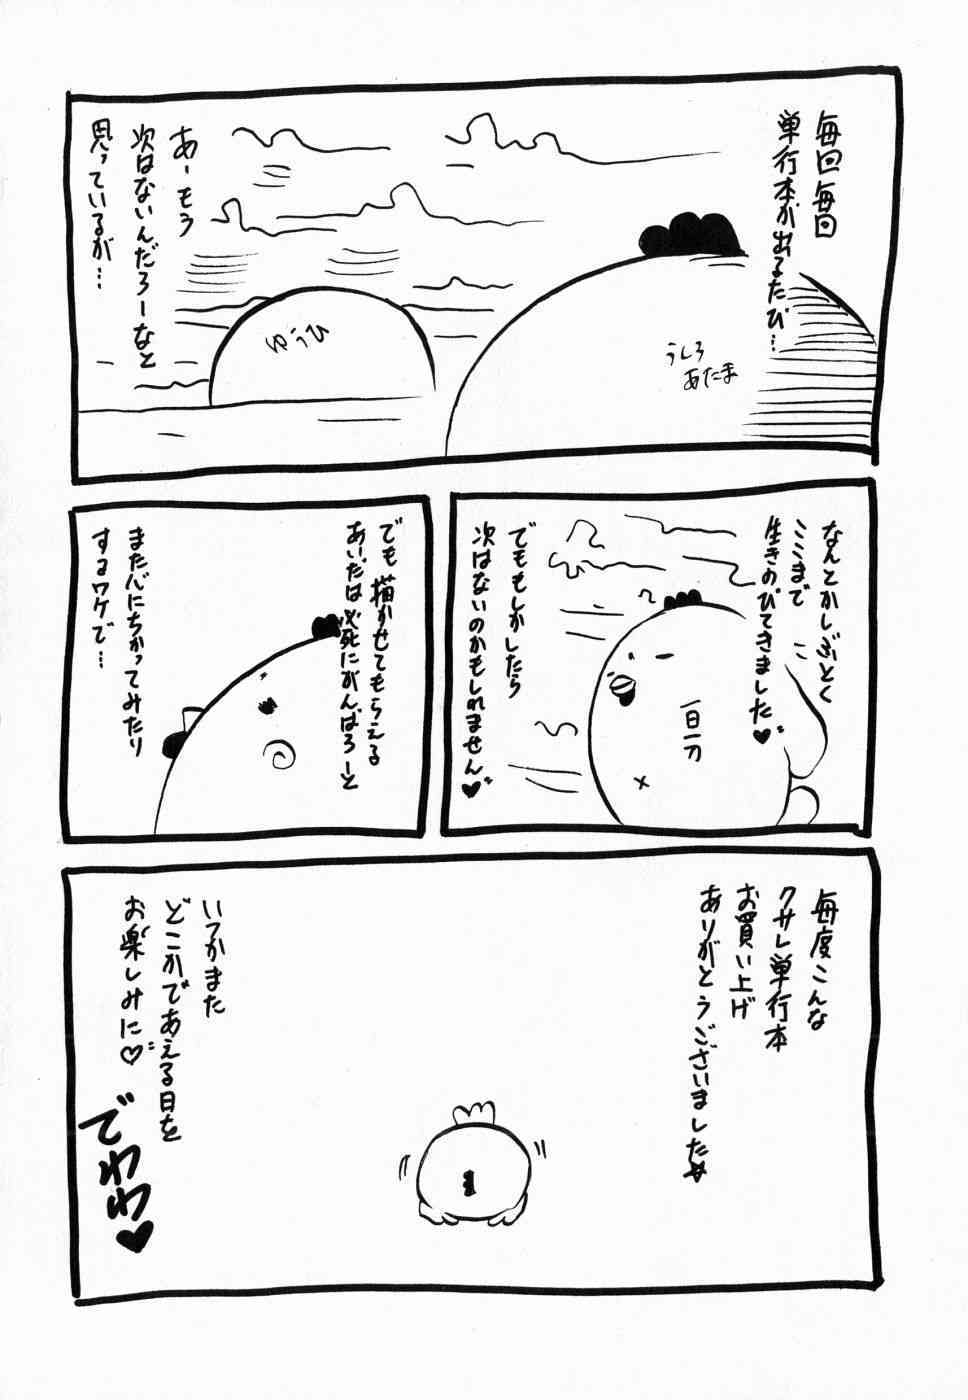 毎回毎回
単行本が出るたび…
うしろ
あたま
ゆうひ
あーもう
次はないんだろーなと
思っているが…
なんとかしぶとく
ここまで
生きのびてきました♥
一日一刀
でももしかしたら
次はないのかもしれません♥
でも描かせてもらえる
あいだは必死にがんばろーと
また心にちかってみたり
するワケで…
毎度こんな
クサレ単行本
お買い上げ
ありがとうございました
いつかまた
どこかであえる日を
お楽しみに♡
でわわ♥